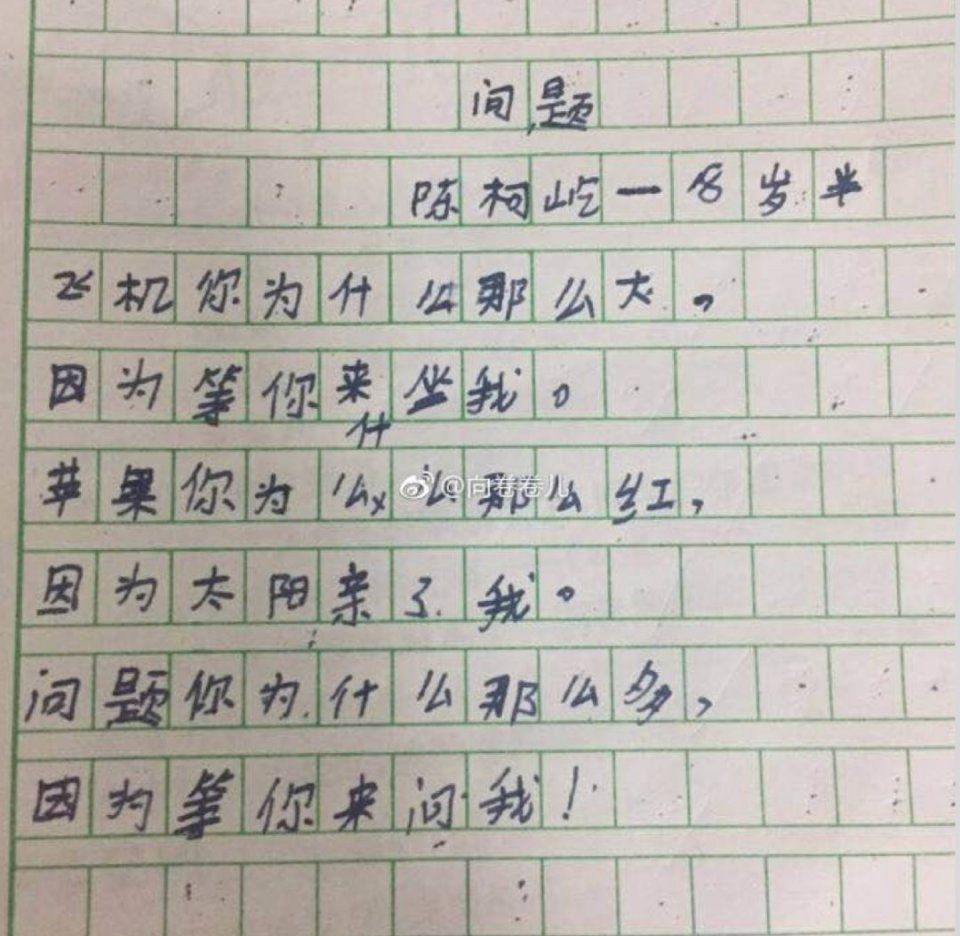 问题
陈柯屹一8岁半
飞机你为什么那么大,
因为等你来坐我。
什
苹果你为么x么那么红,
@向卷卷儿
因为太阳亲了我。
问题你为什么那么多,
因为等你来问我!